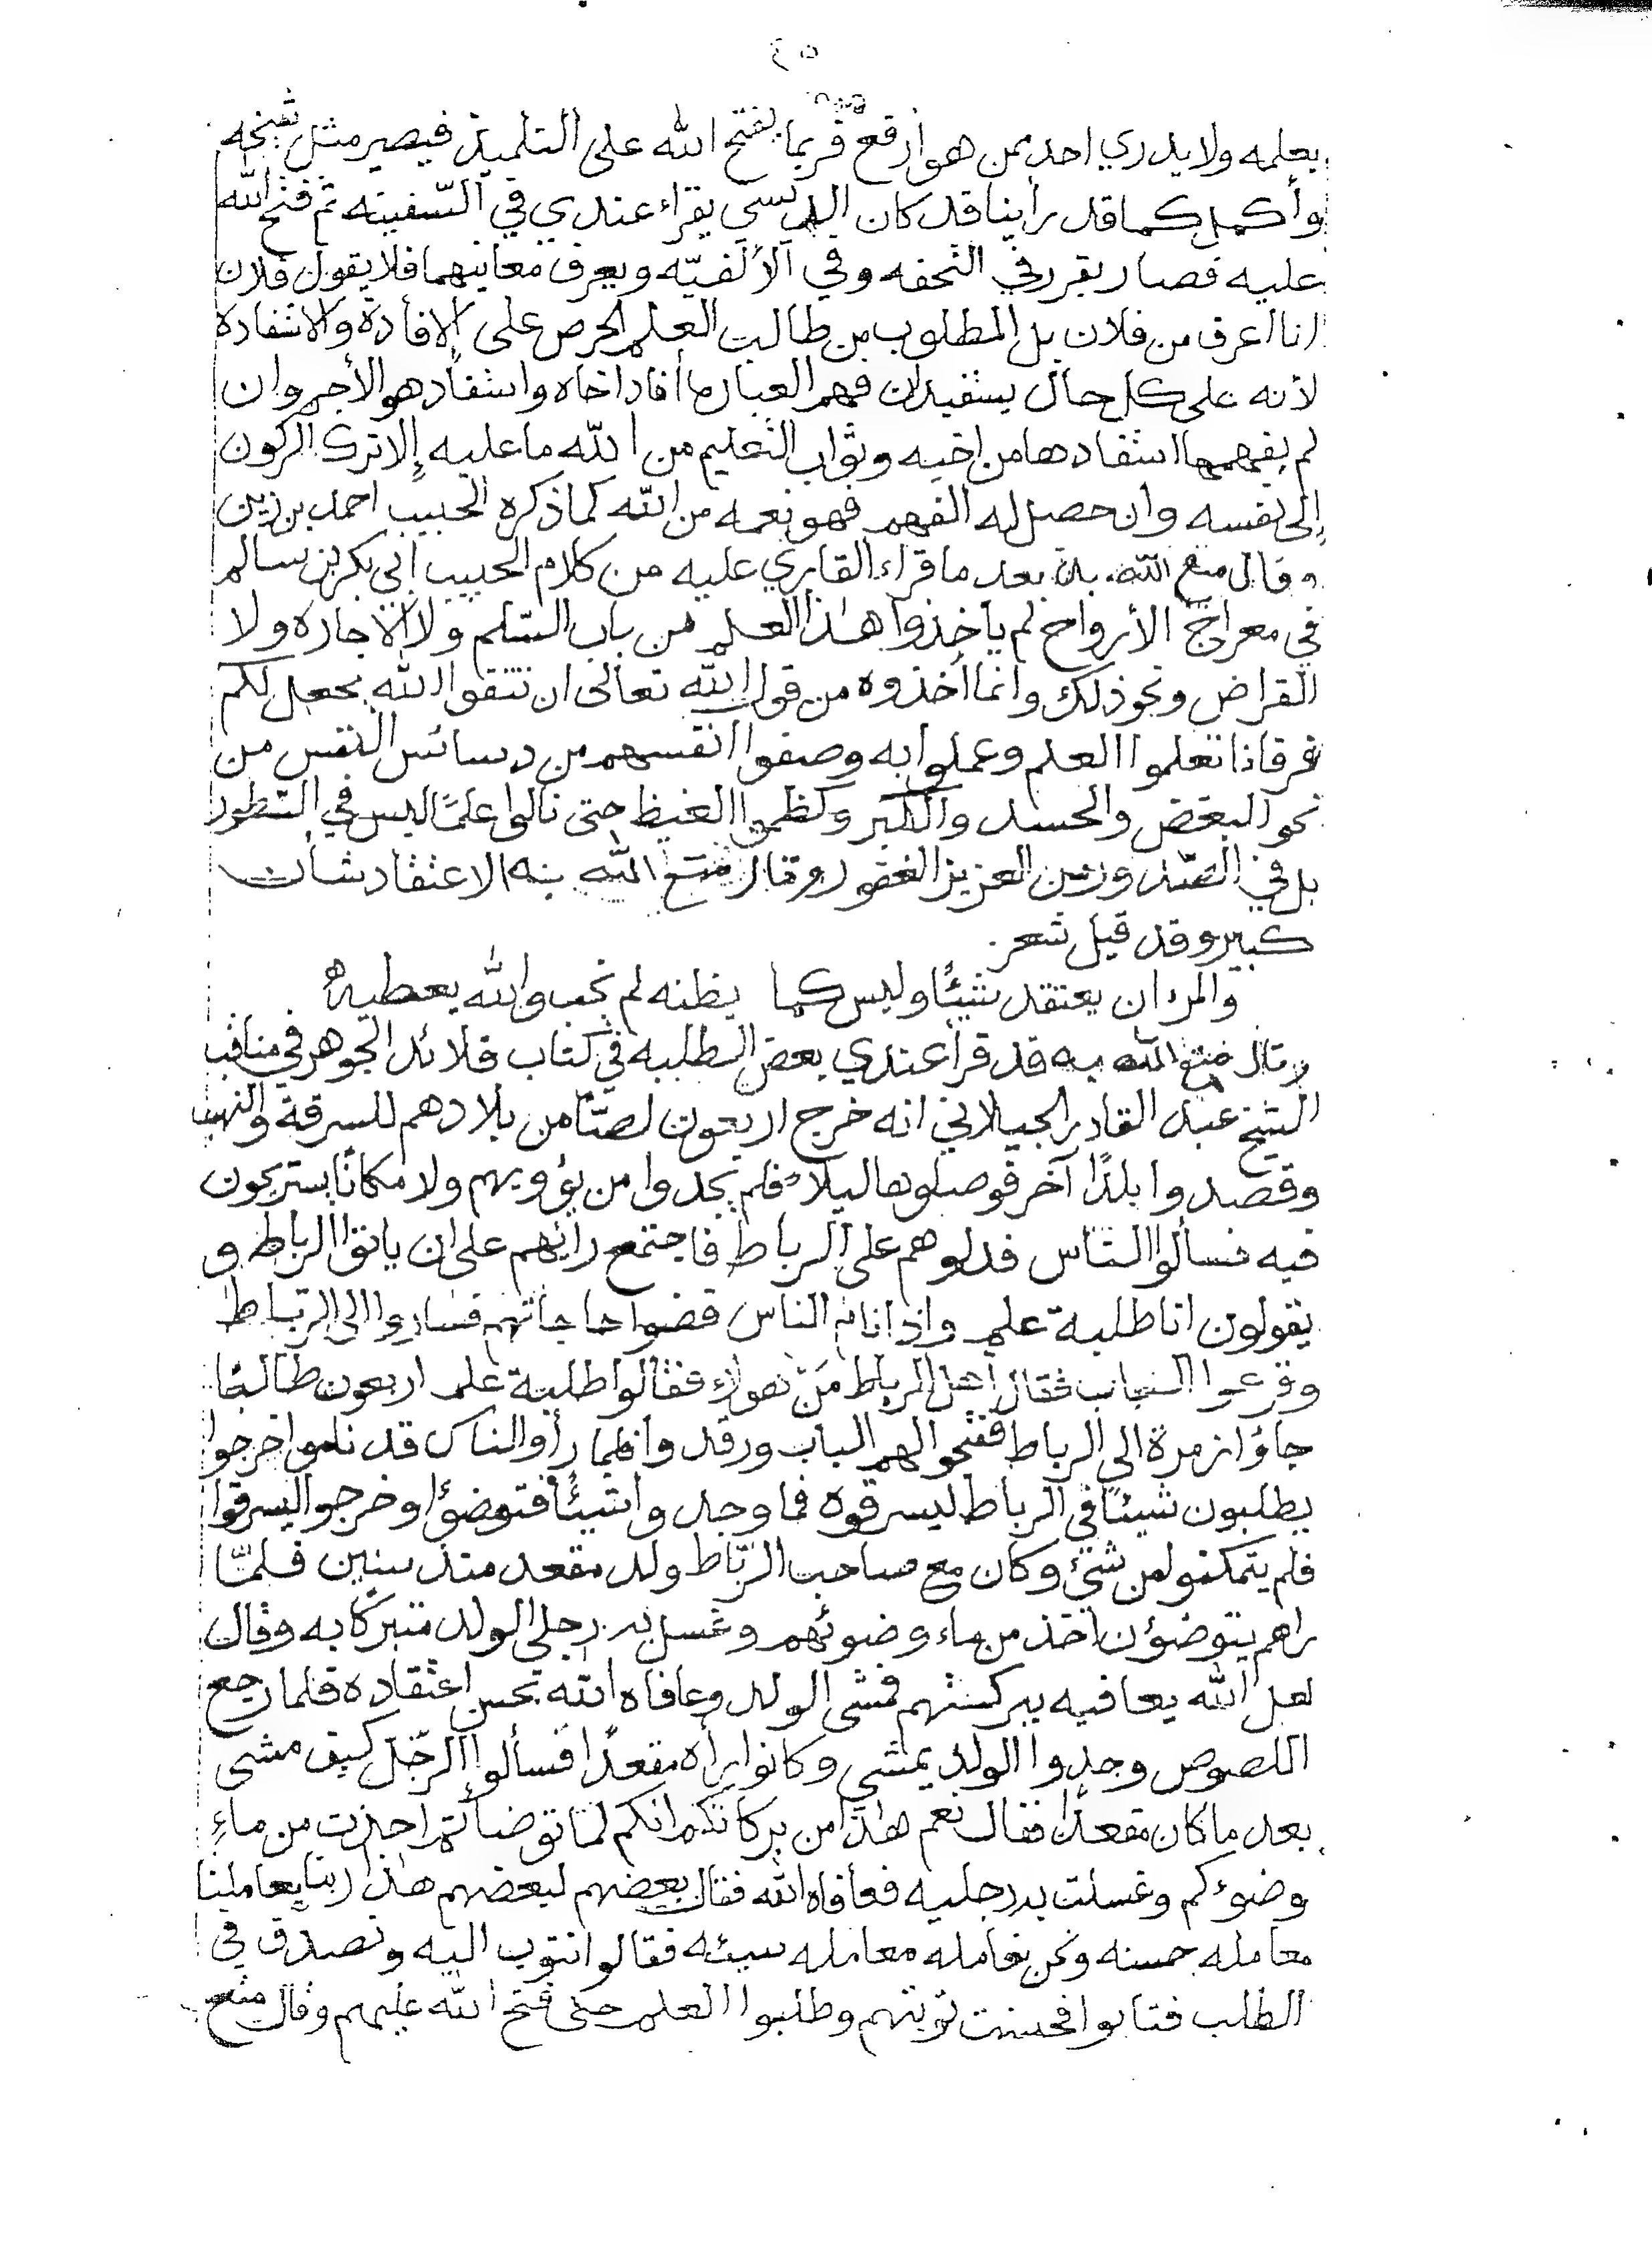 ٤٥
بعلمه ولا يدري احد بمن هو أرفع فربما يفتح الله على التلميذ فيصير مثل شيخه
وأكمل كما قد رأينا قد كان يقراء عندي في السّفينه ثم فتح الله
عليه فصار يقرر في التحفه وفي الألفيّه ويعرف معانيهما فلا يقول فلان
انا اعرف من فلان بل المطلوب من طالب العلم الحرص على الإفادة والاستفادة
لأنه على كل حال يستفيد ان فهم العباره أفاد اخاه واستفاد هو الأجر وان
لم يفهمها استفادها من اخيه وثواب التعليم من الله ما عليه إلا ترك الركون
إلى نفسه وان حصل له الفهم فهو نعمه من الله كما ذكره الحبيب احمد بن زين
وقال متع الله به بعد ما قراء القاري عليه من كلام الحبيب أبي بكر بن سالم
في معراج الأرواح لم يأخذوا هذا العلم من باب السّلم ولا الاجاره ولا
القراض ونحو ذلك وانما أخذوه من قول الله تعالى ان تتقوا الله يجعل لكم
فرقانا تعلموا العلم وعملوا به وصفوا انفسهم من دسائس النفس من
نحو البغض والحسد والكبر وكظموا الغيظ حتى نالوا علمًا ليس في السّطور
بل في الصّدور من العزيز الغفور وقال متع الله به الاعتقاد شأن
كبير وقد قيل شعر .
والمرء ان يعتقد شيئًا وليس كما يظنه لم يخب والله يعطيه
وقال متع الله به قد قرأ عندي بعض الطلبه في كتاب قلائد الجوهر في مناقب
الشيخ عبد القادر الجيلاني انه خرج اربعون لصًّا من بلادهم للسرقة والنهب
وقصدوا بلدًا آخر فوصلوها ليلاً فلم يجدوا من يؤويهم ولا مكانًا يستريحون
فيه فسألوا النّاس فدلوهم على الرباط فاجتمع رأيهم على ان يأتوا الرباط و
يقولون انا طلبة علم واذا نام الناس قضوا حاجاتهم فساروا الى الرّباط
وقرعوا الباب فقال أهل الرباط مَن هؤلاء فقالوا طلبة علم اربعون طالبًا
جاؤا زمرة الى الرباط ففتحوا لهم الباب ورقدوا فلما رأوا الناس قد ناموا خرجوا
يطلبون شيئًا في الرباط ليسرقوه فما وجدوا شيئًا فتوضؤا وخرجوا ليسرقوا
فلم يتمكنوا من شيء وكان مع صاحب الرّباط ولد مقعد منذ سنين فلمّا
راهم يتوضؤن اخذ من ماء وضوئهم وغسل به رجلي الولد متبركًا به وقال
لعل الله يعافيه ببركتهم فمشى الولد وعافاه الله بحسن اعتقاده فلما رجع
اللصوص وجدوا الولد يمشي وكانوا رأوه مقعدًا فسألوا الرجّل كيف مشى
بعد ما كان مقعدًا فقال نعم هذا من بركاتكم انكم لما توضأتم اخذت من ماءِ
وضوءكم وغسلت به رجليه فعافاه الله فقال بعضهم لبعضهم هذا ربنا يعاملنا
معامله حسنه ونحن نعامله معامله سيئه فقالوا نتوب اليه ونصدق في
الطلب فتابوا فحسنت توبتهم وطلبوا العلم حتى فتح الله عليهم وقال متع